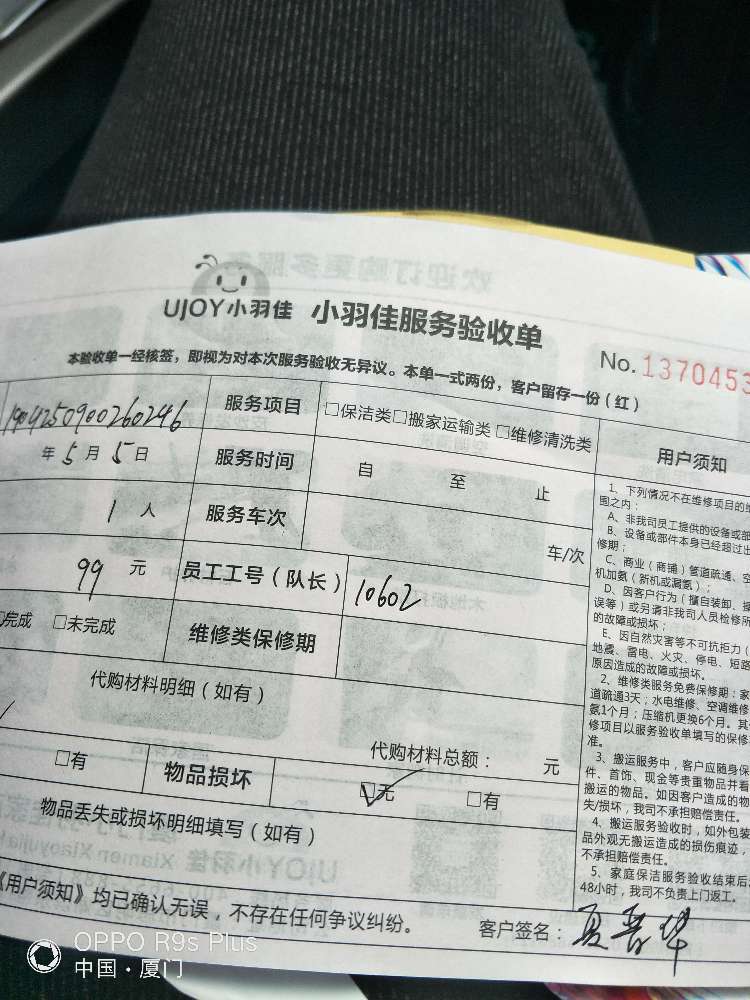 欢迎订购更多服务
UJOY小羽佳 小羽佳服务验收单
No. 1370453
本验收单一经核签，即视为对本次服务验收无异议。本单一式两份，客户留存一份（红）
1904250900260246 服务项目 □保洁类□搬家运输类 □维修清洗类
年5月5日 服务时间 自 至 止
1人 服务车次 车/次
99元 员工工号（队长） 10602
完成 □未完成 维修类保修期
代购材料明细（如有）
代购材料总额： 元
□有 物品损坏 ☑无 □有
物品丢失或损坏明细填写（如有）
《用户须知》均已确认无误，不存在任何争议纠纷。 客户签名：夏春华
用户须知
1、下列情况不在维修项目的维
围之内：
A、非我司员工提供的设备或部
B、设备或部件本身已经超过出
修期；
C、商业（商铺）管道疏通、空
机加氨（新机或漏氨）；
D、因客户行为（擅自装卸、操
误等）或另请非我司人员检修所
的故障或损坏；
E、因自然灾害等不可抗拒力（
地震、雷电、火灾、停电、短路
原因造成的故障或损坏。
2、维修类服务免费保修期：家
道疏通3天；水电维修、空调维修
氨1个月；压缩机更换6个月。其
修项目以服务验收单填写的保修
准。
3、搬运服务中，客户应随身保
件、首饰、现金等贵重物品并看
搬运的物品。如因客户造成的物
失/损坏，我司不承担赔偿责任。
4、搬运服务验收时，如外包装
品外观无搬运造成的损伤痕迹，
不承担赔偿责任。
5、家庭保洁服务验收结束后
48小时，我司不负责上门返工。
OPPO R9s Plus
中国·厦门